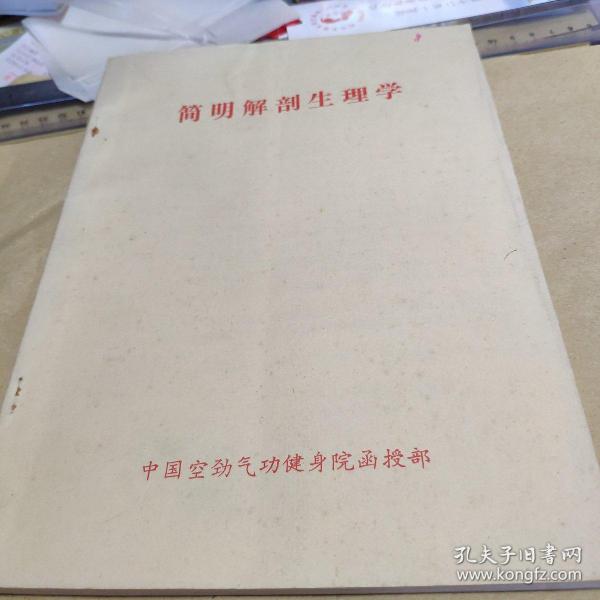 简明解剖生理学
中国空劲气功健身院函授部
孔夫子旧書网
www.kongfz.com